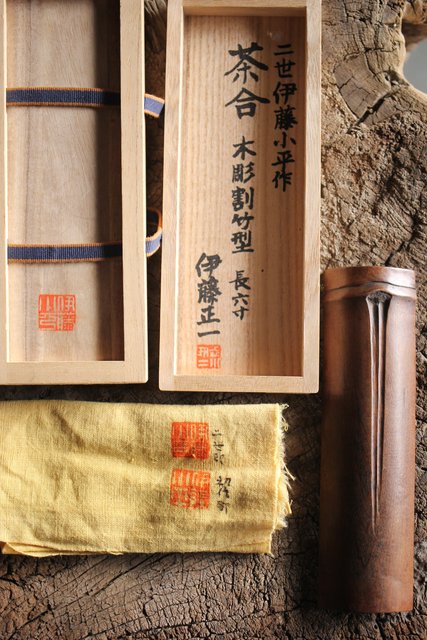 二世伊藤小平作
茶合 木彫割竹型 長六寸
伊藤正一
二世印